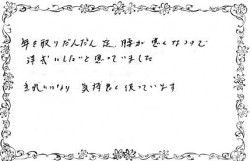 年を取りだんだん足腰が悪くなって
洋式にしたいと思っていました
きれいになり気持良く使っています